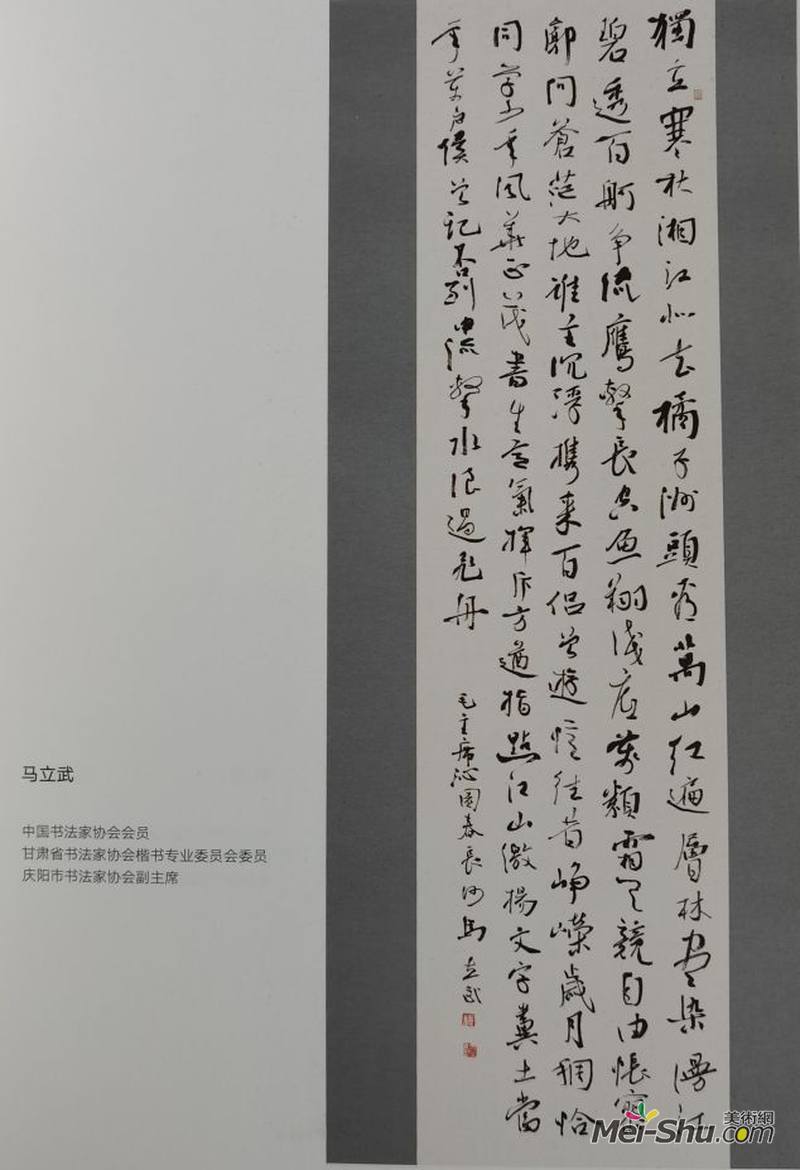 獨立寒秋湘江北去橘子洲頭看萬山红遍層林盡染漫江
碧透百舸争流鷹擊長空魚翔淺底萬類霜天競自由悵寥
廓问蒼茫大地誰主沉浮携來百侶曾遊憶往昔崢嶸歲月稠恰
同学少年風華正茂書生意氣揮斥方遒指點江山激揚文字糞土當
年萬户侯曾记否到中流擊水浪遏飛舟
毛主席沁園春長沙馬立武
马立武
中国书法家协会会员
甘肃省书法家协会楷书专业委员会委员
庆阳市书法家协会副主席
美術網
Mei-Shu.com